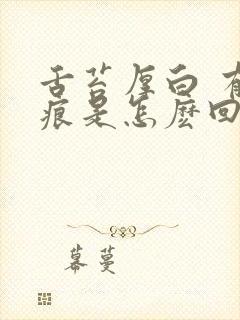 舌苔厚白 有
痕是怎麽回
幕蔓